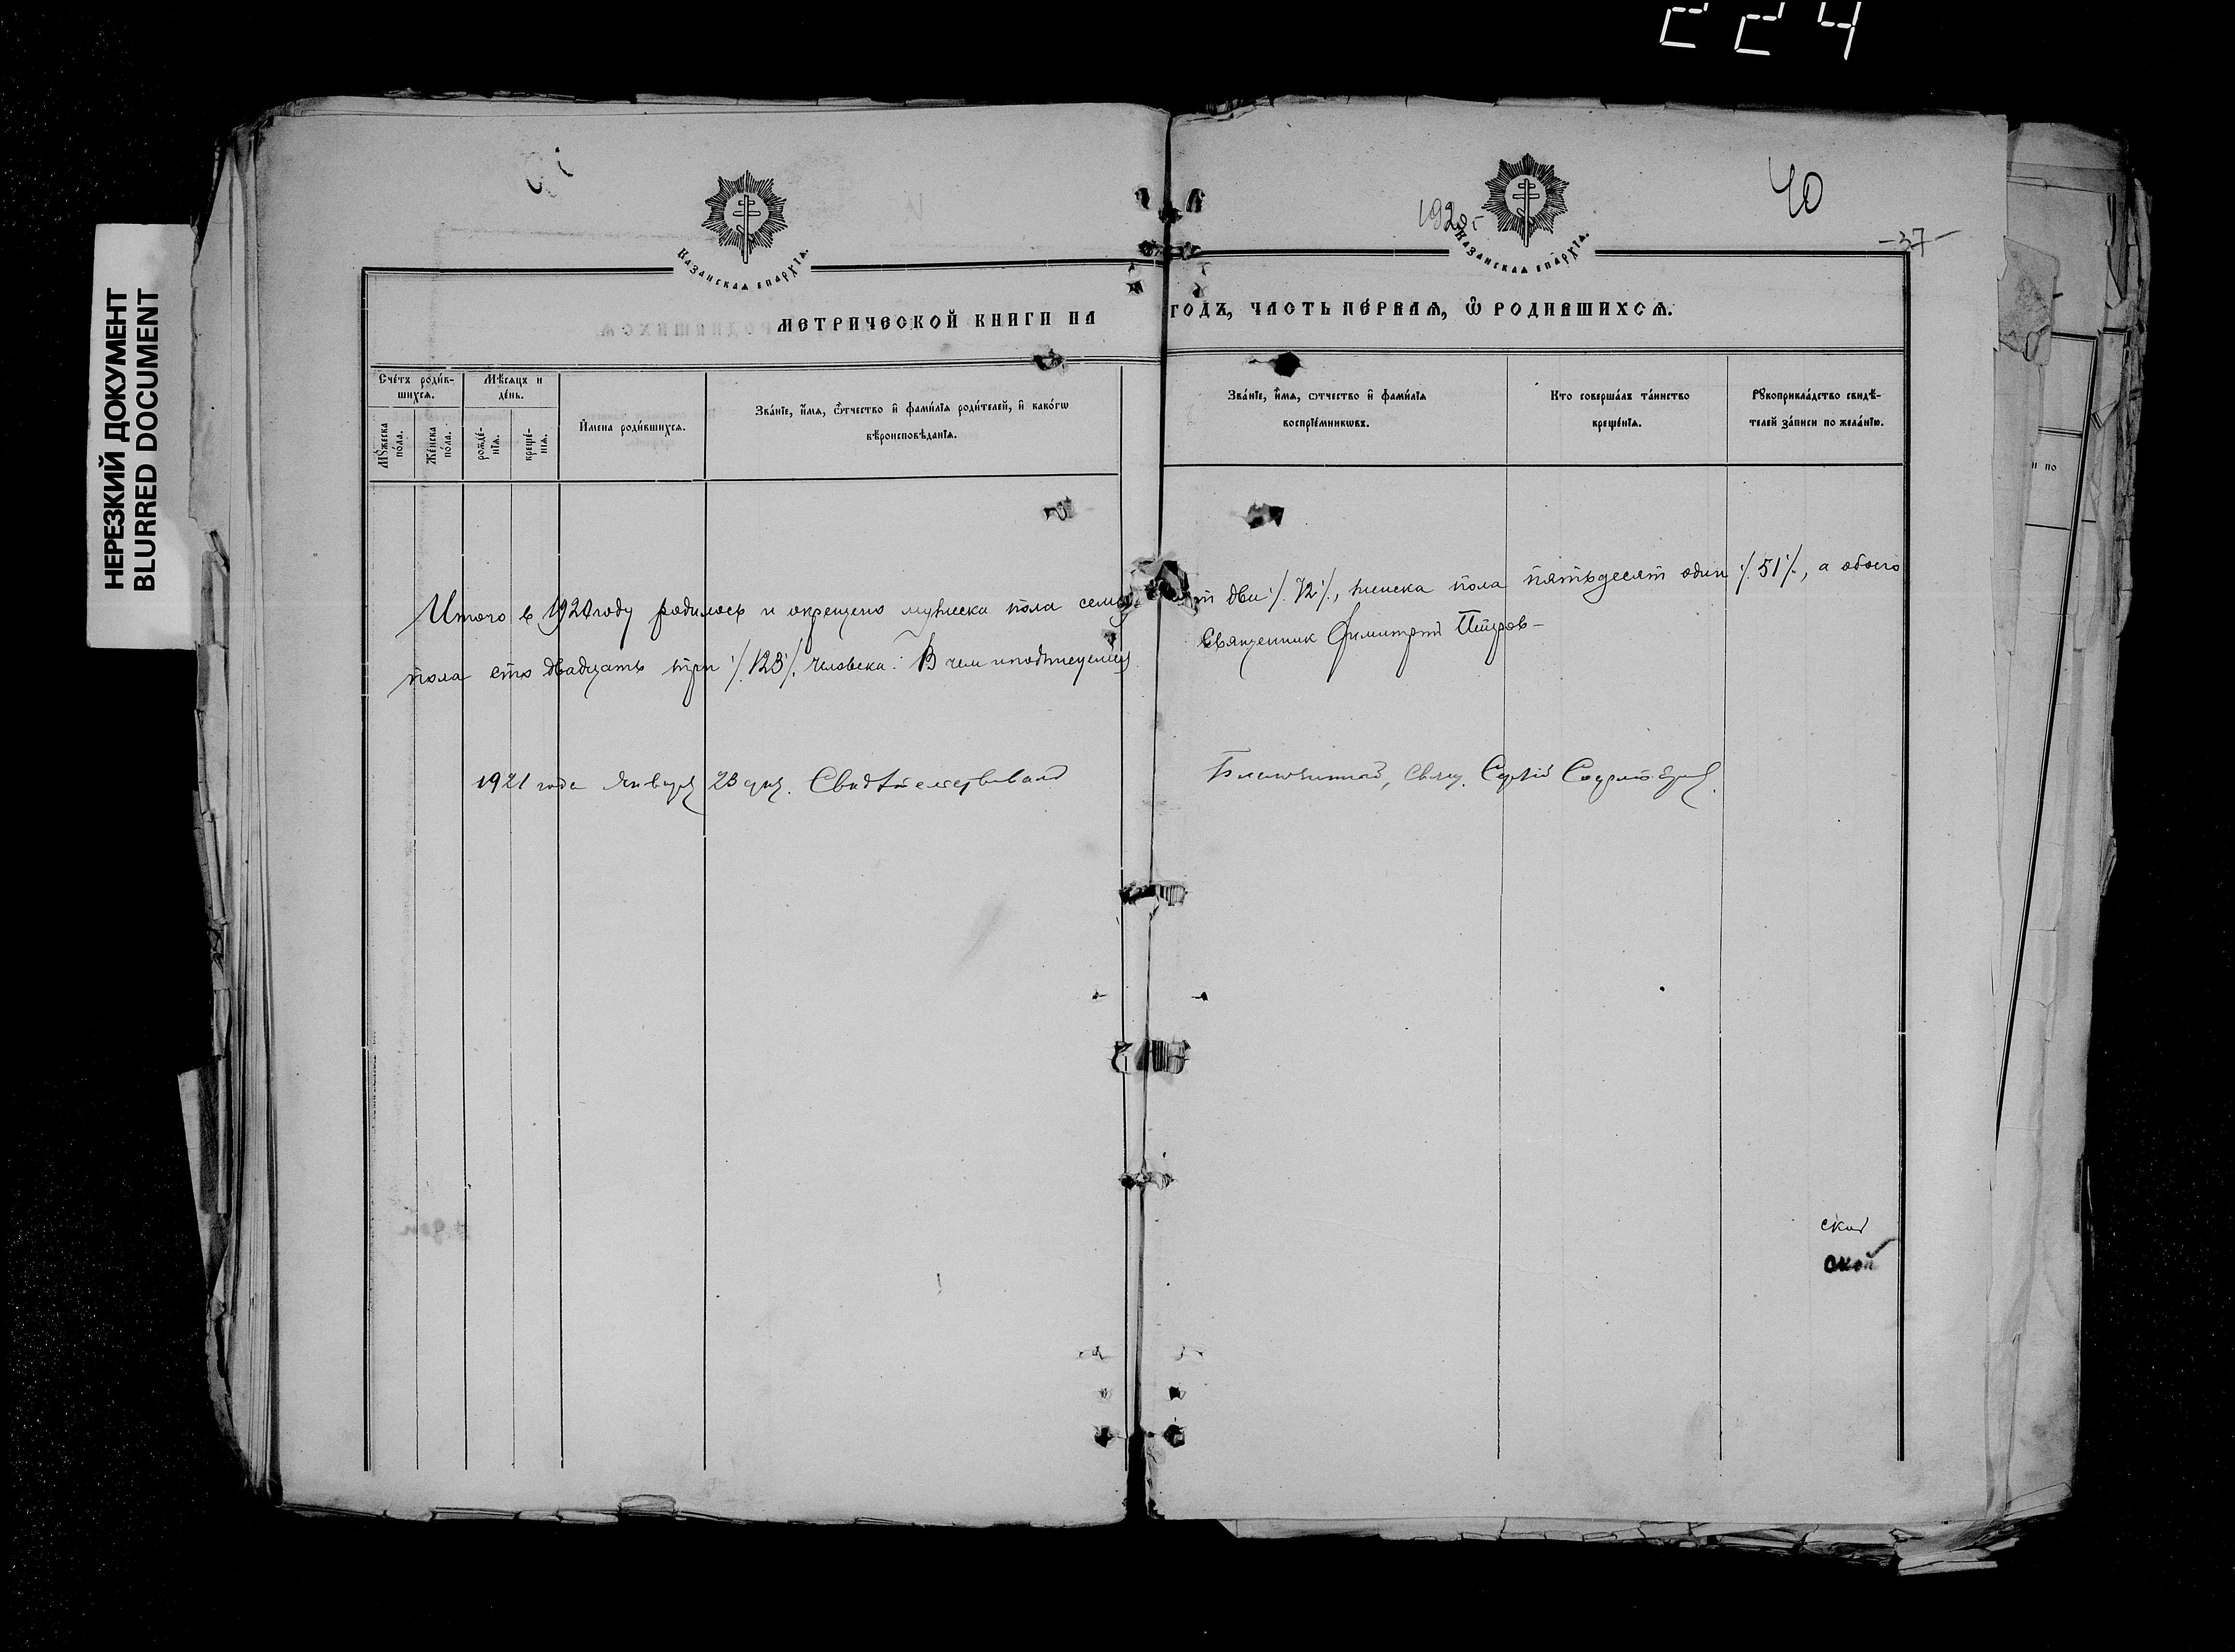 224
НЕРЕЗКИЙ ДОКУМЕНТ
BLURRED DOCUMENT
40
1920 г
-37-
Казанская епархїѧ.
Казанская епархїѧ.
МЕТРИЧЕСКОЙ КНИГИ НА ГОДЪ, ЧАСТЬ ПЕ́РВАѦ, Ѿ РОДИВШИХСѦ.
Сче́тъ роди́в-
шихсѧ.
Мꙋ́жеска по́ла.
Же́нска по́ла.
Мѣ́сѧцъ и
де́нь.
рожде́-
нїѧ.
креще́-
нїѧ.
И҆мена роди́вшихсѧ.
Зва́нїе, и҆́мѧ, ѻ҆́тчество и҆ фами́лїѧ роди́телей, и҆ како́гѡ
вѣроисповѣ́данїѧ.
Зва́нїе, и҆́мѧ, ѻтчество и҆ фами́лїѧ
воспрїе́мникѡвъ.
Кто соверша́лъ та́инство
креще́нїѧ.
Рꙋкоприкла́дство свидѣ́-
телей за́писи по жела́нїю.
и по
Итого в 1920 году родилось и окрещено мужеска пола семьдесят две /.72/., женска пола пятьдесят один /.51/., а обоего
пола сто двадцать три /.123/. человека. В чем и подписуемся Священник Димитрий Петров
1921 года января 23 дня. Свидѣтельствовалъ Благочинный, Свящ. Сергій
ской
ской